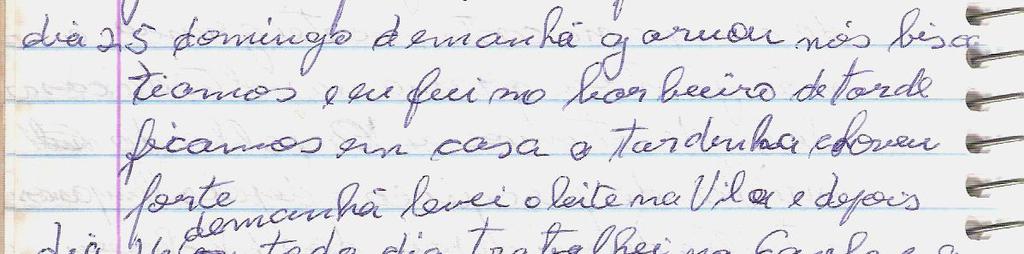 dia 25 domingo demanhã garuou nós bisca
tiamos e eu fui no barbeiro detarde
ficamos em casa a tardinha choveu
forte
demanhã levei o leite na Vila e depois
dia todo dia trabalhei na